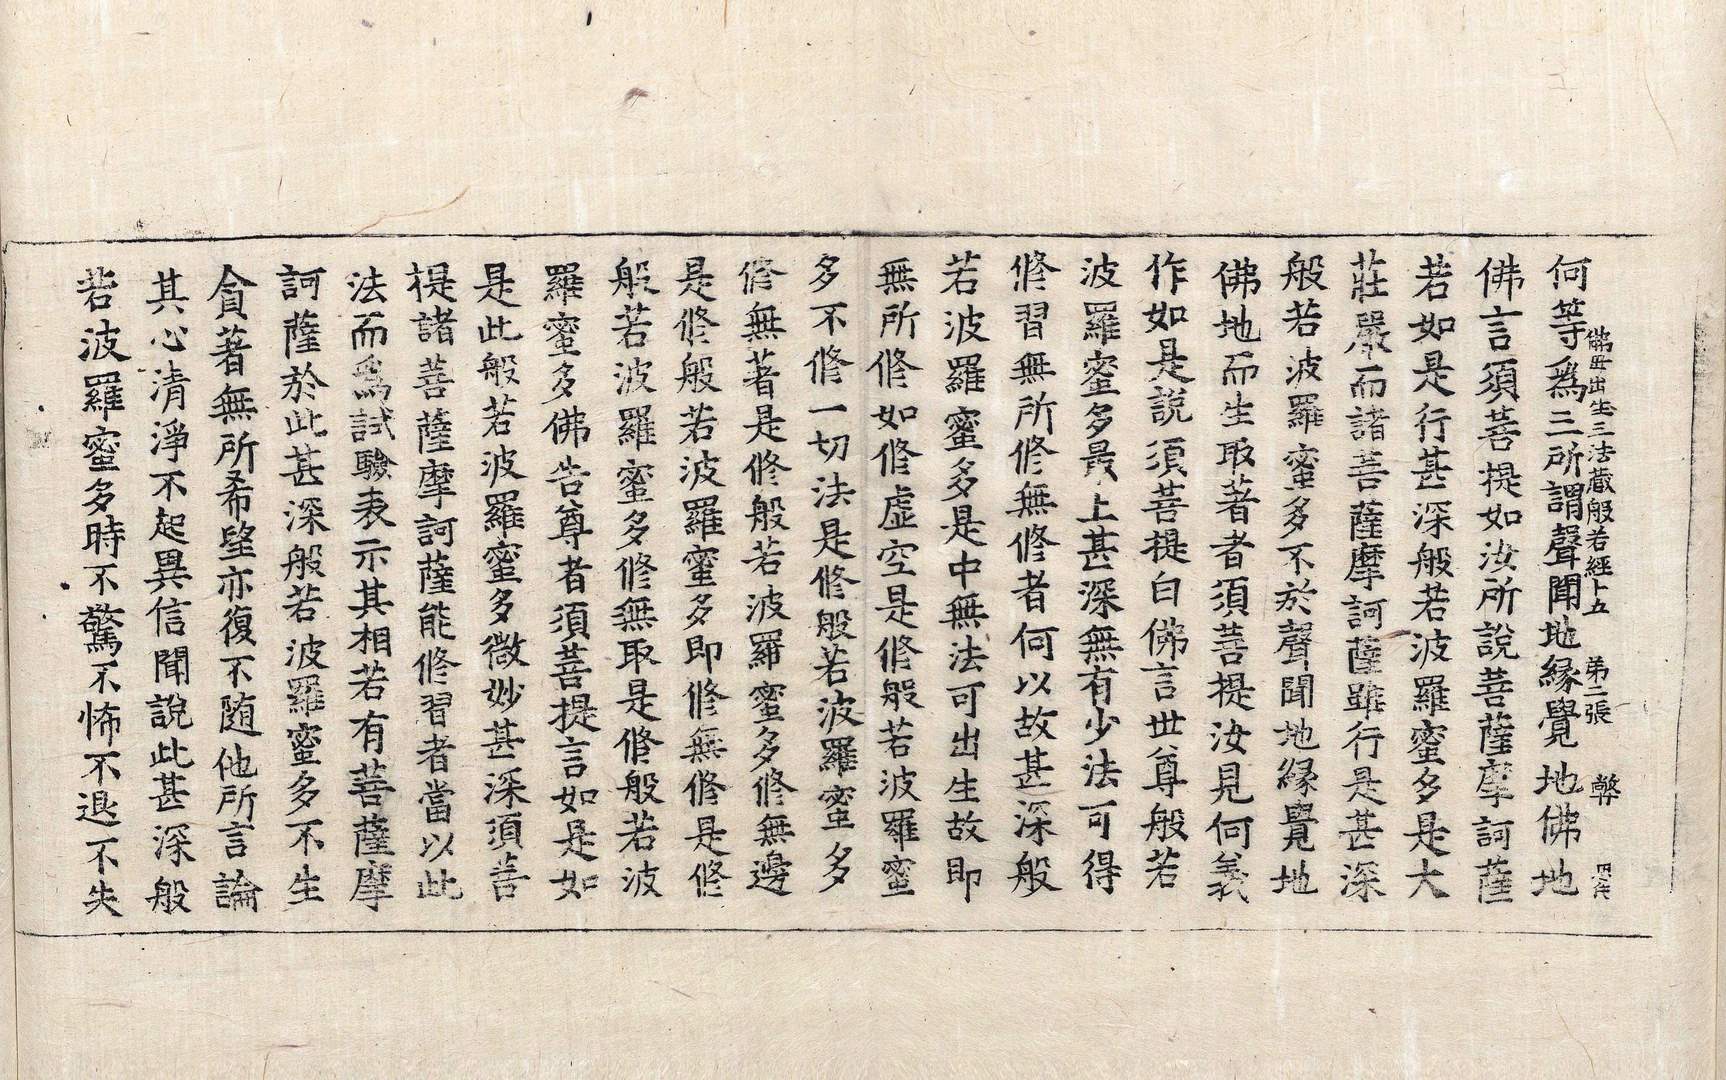 佛母出生三法藏般若經十五　第二張　弊
何等爲三所謂聲聞地緣覺地佛地
佛言須菩提如汝所說菩薩摩訶薩
若如是行甚深般若波羅蜜多是大
莊嚴而諸菩薩摩訶薩雖行是甚深
般若波羅蜜多不於聲聞地緣覺地
佛地而生取著者須菩提汝見何義
作如是說須菩提白佛言世尊般若
波羅蜜多最上甚深無有少法可得
修習無所修無修者何以故甚深般
若波羅蜜多是中無法可出生故即
無所修如修虛空是修般若波羅蜜
多不修一切法是修般若波羅蜜多
修無著是修般若波羅蜜多修無邊
是修般若波羅蜜多即修無修是修
般若波羅蜜多修無取是修般若波
羅蜜多佛告尊者須菩提言如是如
是此般若波羅蜜多微妙甚深須菩
提諸菩薩摩訶薩能修習者當以此
法而爲試驗表示其相若有菩薩摩
訶薩於此甚深般若波羅蜜多不生
貪著無所希望亦復不随他所言論
其心清淨不起異信聞說此甚深般
若波羅蜜多時不驚不怖不退不失